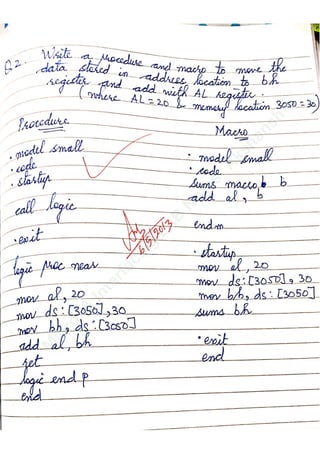 Q2. Write a procedure and macro to move the
data stored in address location to bh
register and add with AL register.
(where AL=20 & memory location 3050=30)
Procedure
.model small
.code
.startup
call logic
.exit
logic proc near
mov al, 20
mov ds:[3050], 30
mov bh, ds:[3050]
add al, bh
ret
logic end p
end
Macro
.model small
.code
sums macro b
add al, b
endm
.startup
mov al, 20
mov ds:[3050], 30
mov bh, ds:[3050]
sums bh
.exit
end
6/5/2013